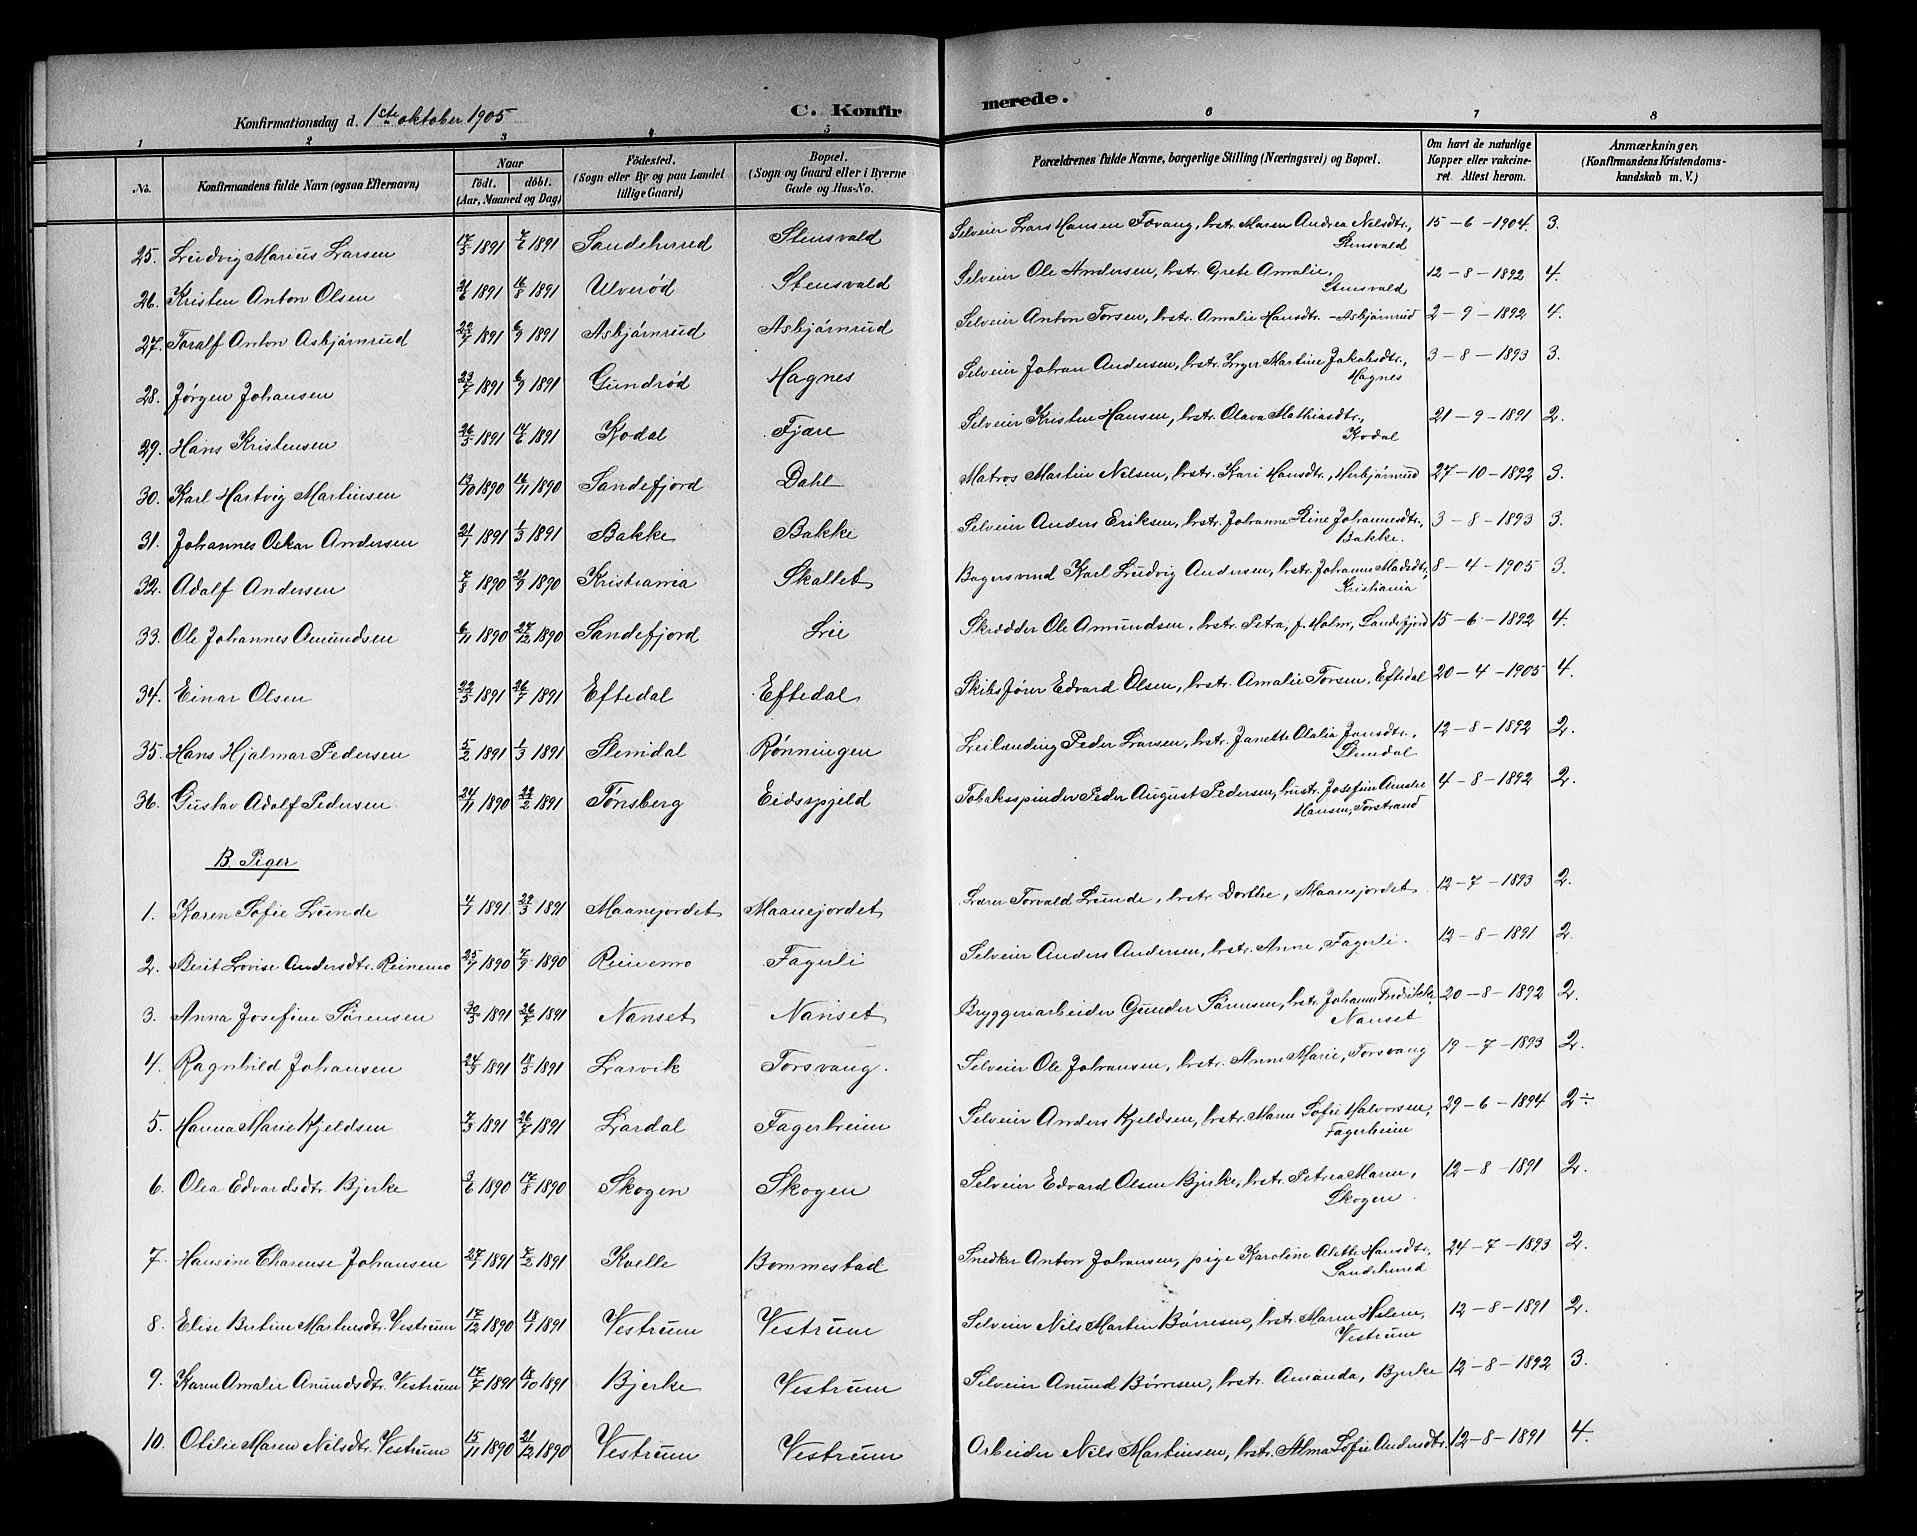 Konfirmationsdag d. 1ste oktober 1905
C. Konfirmerede.
1 2 3 4 5 6 7 8
No. Konfirmandens fulde Navn (ogsaa Efternavn) Naar født. døbt. (Aar, Maaned og Dag) Fødested. (Sogn eller By og paa Landet tillige Gaard) Bopæl. (Sogn og Gaard eller i Byerne Gade og Hus-No. Forældrenes fulde Navne, borgerlige Stilling (Næringsvei) og Bopæl. Om havt de naturlige Kopper eller vakcineret. Attest herom. Anmærkninger. (Konfirmandens Kristendomskundskab m. V.)
25. Ludvig Marius Larsen 17/3 1891 7/6 1891 Sandeherred Stensvald Selveier Lars Hansen Fovang, hstr. Maren Andrea Nilsdtr., Stensvald 15-6-1904. 3.
26. Kristen Anton Olsen 21/6 1891 16/8 1891 Ulverød Stensvald Selveier Ole Andersen, hstr. Grete Amalie, Stensvald 12-8-1892 4.
27. Toralf Anton Asbjørnrud 22/7 1891 6/9 1891 Asbjørnrud Asbjørnrud Selveier Anton Torsen, hstr. Amalie Hansdtr. - Asbjørnrud 2-9-1892 4.
28. Jørgen Johansen 23/7 1891 6/9 1891 Gundrød Hagnes Selveier Johan Andersen, hstr. Inger Martine Jakobsdtr., Hagnes 3-8-1893 3.
29. Hans Kristensen 26/3 1891 14/6 1891 Kodal Fjære Selveier Kristen Hansen, hstr. Olava Mathiasdtr., Kodal 21-9-1891 2.
30. Karl Hartvig Martinsen 13/10 1890 16/11 1890 Sandefjord Dahl Matros Martin Nilsen, hstr. Kari Hansdtr., Herbjørnrud 27-10-1892 3.
31. Johannes Oskar Andersen 21/1 1891 1/3 1891 Bakke Bakke Selveier Anders Eriksen, hstr. Johanne Stine Johannesdtr., Bakke. 3-8-1893 3.
32. Adolf Andersen 7/8 1890 21/9 1890 Kristiania Skallet Bagersvend Karl Ludvig Andersen, hstr. Johanne Madsdtr., Kristiania 8-4-1905 3.
33. Ole Johannes Amundsen 6/11 1890 27/12 1890 Sandefjord Lie Skrædder Ole Amundsen, hstr. Petra, f. Holm, Sandefjord 15-6-1892 4.
34. Einar Olsen 22/3 1891 26/7 1891 Eftedal Eftedal Skibsfører Edvard Olsen, hstr. Amalie Torsen, Eftedal 20-4-1905 4.
35. Hans Hjalmar Pedersen 5/2 1891 1/3 1891 Slemdal Rønningen Leilænding Peder Larsen, hstr. Janette Olalia Jansdtr., Slemdal 12-8-1892 2.
36. Gustav Adolf Pedersen 24/11 1890 22/2 1891 Tønsberg Eidsspjeld Tobaksspinder Peder August Pedersen, hustr. Josefine Amalie Hansen, Torstrand 4-8-1892 2.
B. Piger
1. Karen Sofie Lunde 4/1 1891 29/3 1891 Maanejordet Maanejordet Lærer Torvald Lunde, hstr. Dorthe, Maanejordet 12-7-1893 2.
2. Berit Lovise Andersdtr. Reinemo 25/7 1890 7/9 1890 Reinemo Fagerli Selveier Anders Andersen, hstr. Anne, Fagerli. 12-8-1891 2.
3. Anna Josefine Sørensen 30/3 1891 26/7 1891 Nanset Nanset Bryggeriarbeider Gunder Sørensen, hstr. Johanne Fredrikke, Nanset 20-8-1892 2.
4. Ragnhild Johansen 24/3 1891 18/3 1891 Larvik Torsvang. Selveier Ole Johansen, hstr. Anne Marie, Torsvang 19-7-1893 2.
5. Hanna Marie Kjeldsen 7/3 1891 26/7 1891 Lardal Fagerheim Selveier Anders Kjeldsen, hstr. Maren Sofie Halvorsen, Fagerheim 29-6-1894 2÷
6. Olea Edvardsdtr. Bjerke 3/6 1890 17/8 1890 Skogen Skogen Selveier Edvard Olsen Bjerke, hstr. Petrea Maren, Skogen. 12-8-1891 2.
7. Hansine Charense Johansen 27/1 1891 7/2 1891 Kvelle Bommestad Snedker Anton Johansen, pige Karoline Alette Hansdtr., Sandeherred 24-7-1893 2.
8. Elise Bertine Martinsdtr. Vestrum 17/12 1890 18/1 1891 Vestrum Vestrum Selveier Nils Martin Børresen, hstr. Maren Helene, Vestrum 12-8-1891 2.
9. Karen Amalie Anundsdtr. Vestrum 17/7 1891 18/10 1891 Bjerke Vestrum Selveier Anund Børresen, hstr. Amanda, Bjerke 12-8-1892 3.
10. Otilie Maren Nilsdtr. Vestrum 15/11 1890 21/12 1890 Vestrum Vestrum Arbeider Nils Martinsen, hstr. Alma Sofie Andersdtr. 12-8-1891 4.